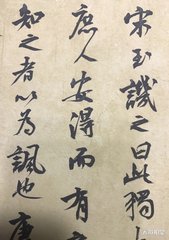 宋玉譏之曰此獨大
庶人安得而有
知之者以為諷也唐